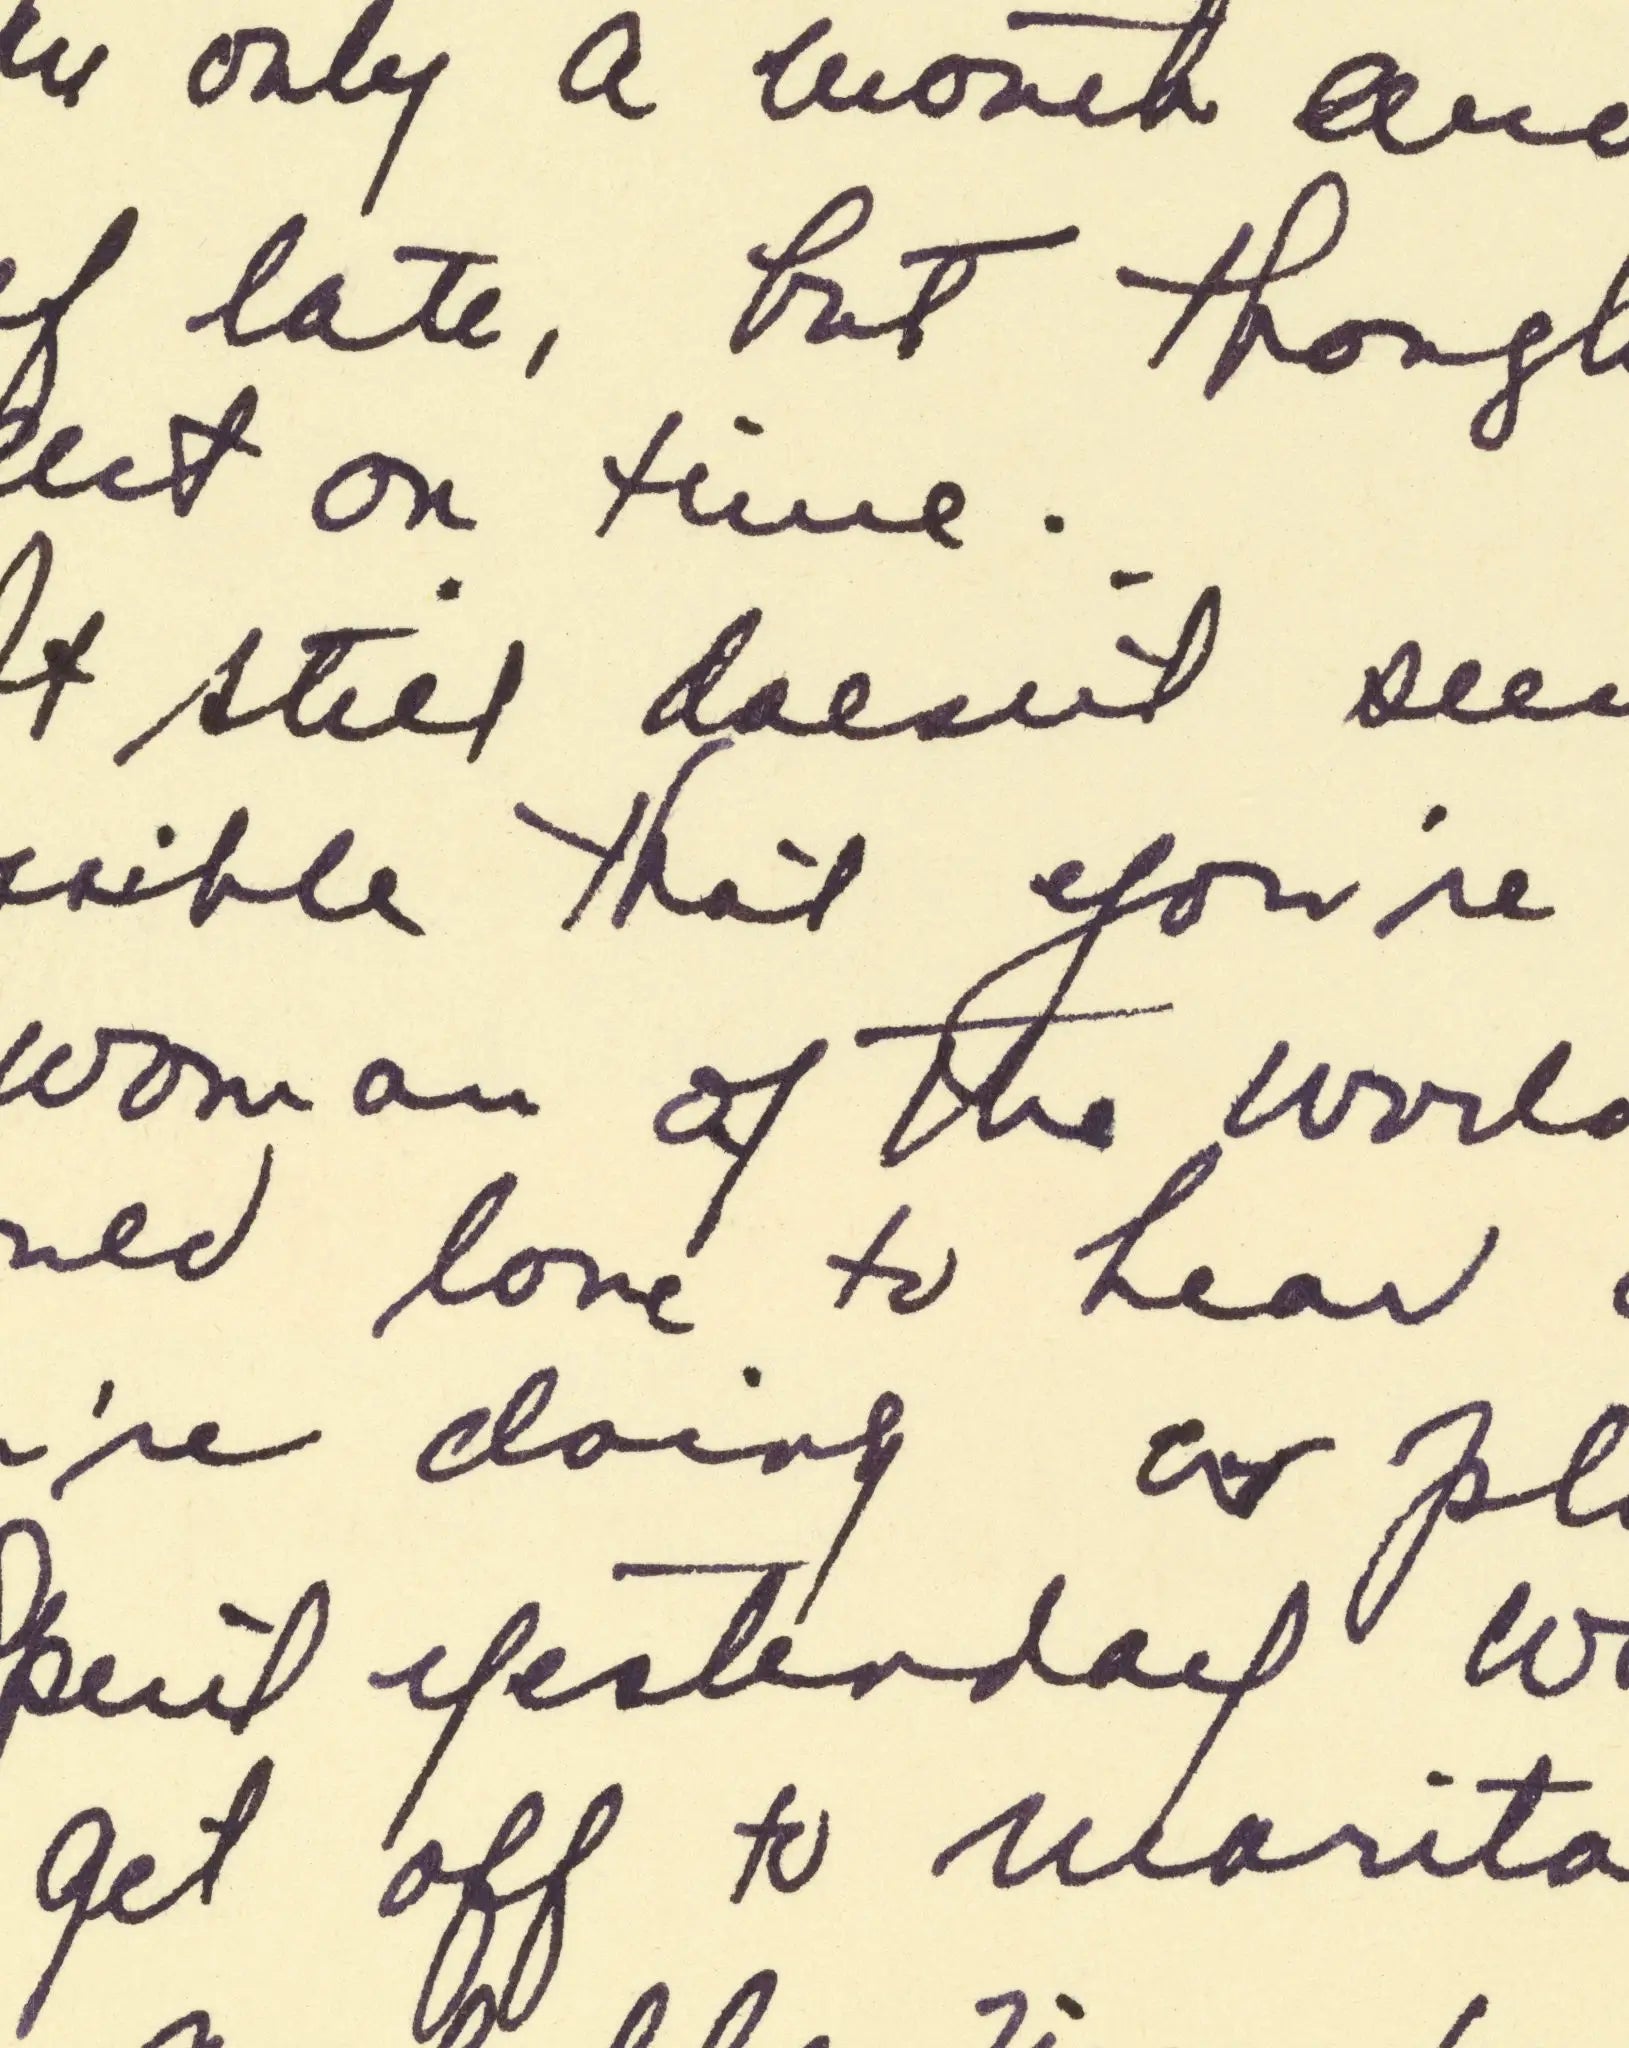 only a month and
of late, but though
on time.
It still doesn't seem
ssible that you're
woman of the world
love to hear
're doing or pl
Spent yesterday wo
get off to Marita